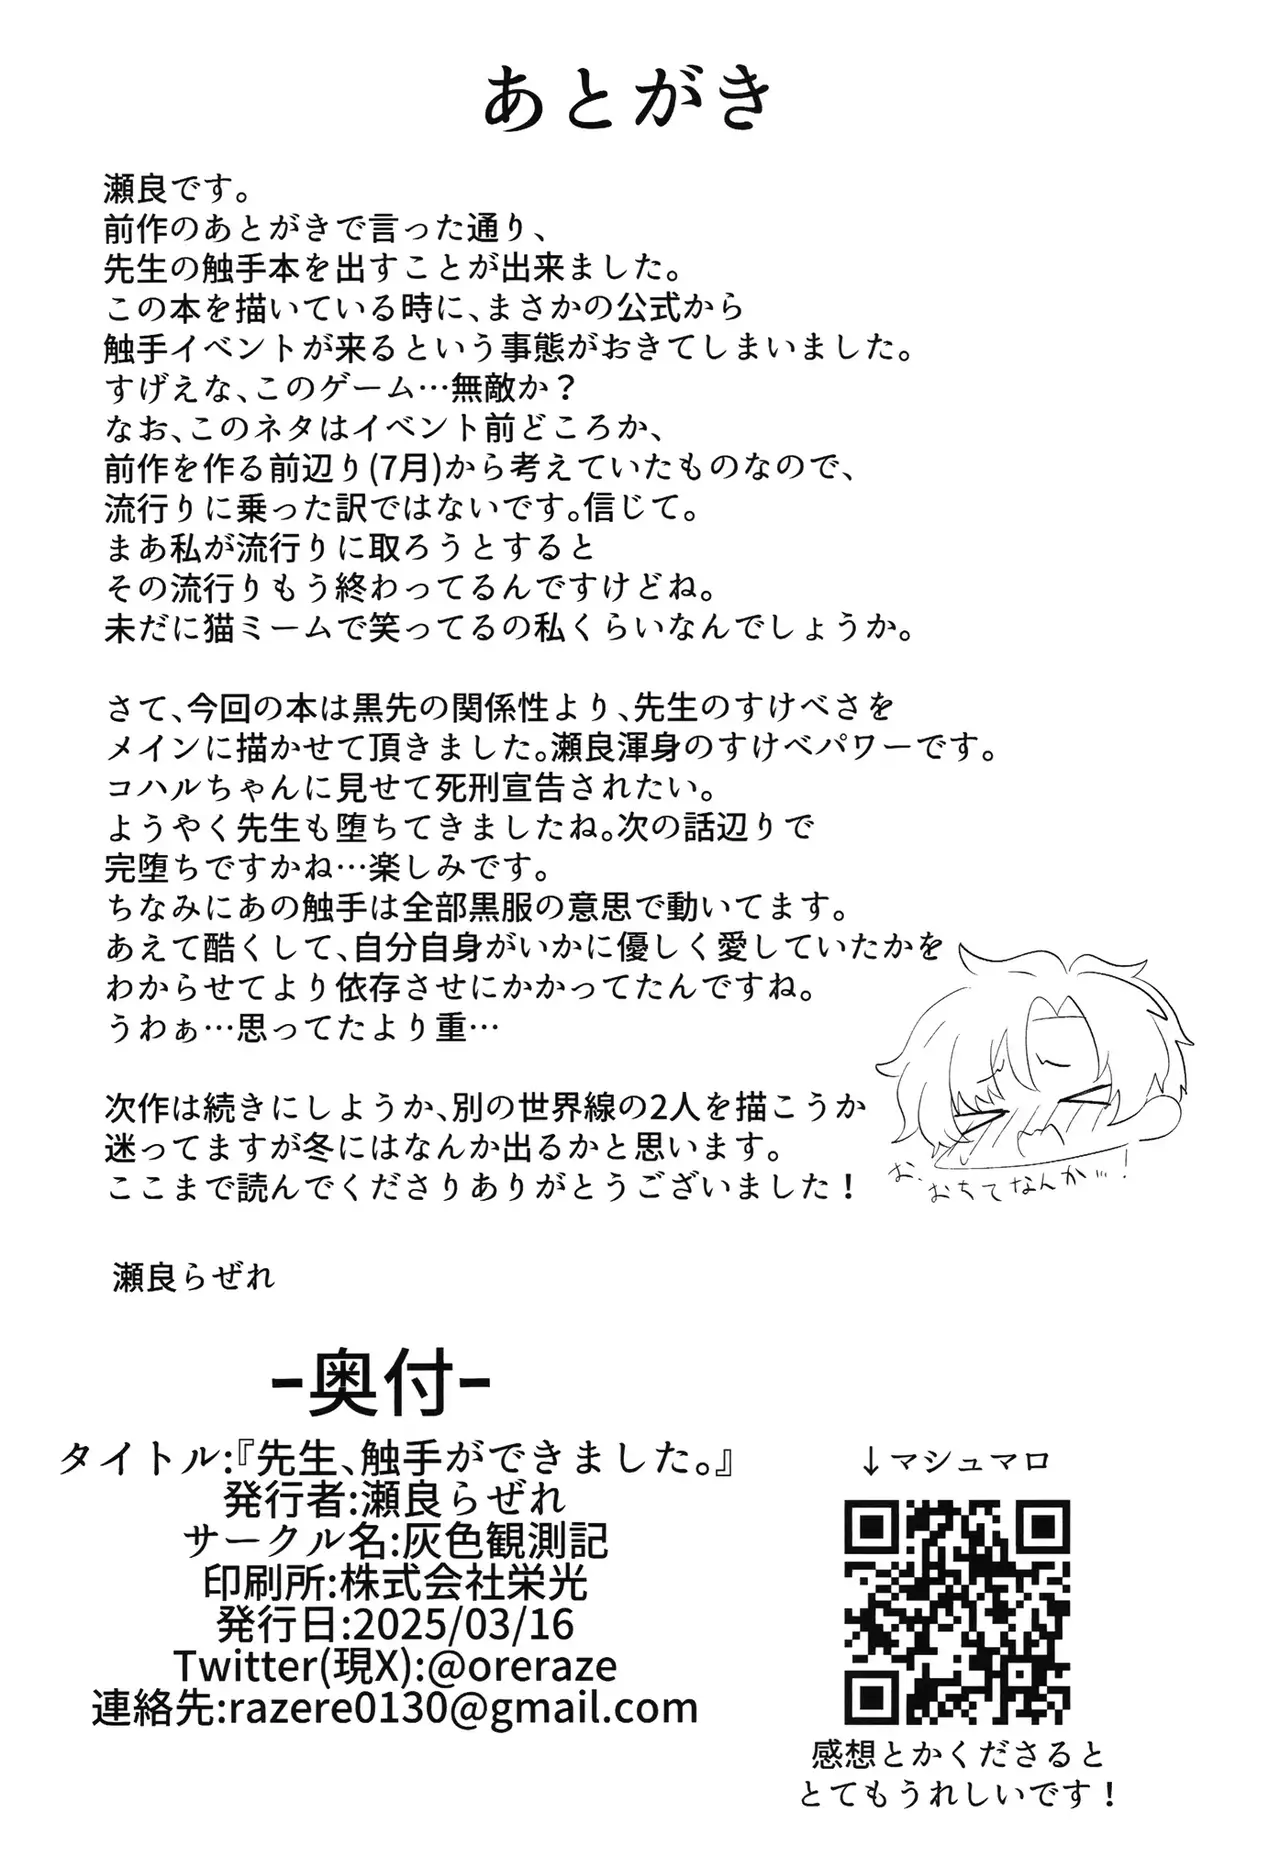 あとがき
瀬良です。
前作のあとがきで言った通り、
先生の触手本を出すことが出来ました。
この本を描いている時に、まさかの公式から
触手イベントが来るという事態がおきてしまいました。
すげえな、このゲーム…無敵か？
なお、このネタはイベント前どころか、
前作を作る前辺り(7月)から考えていたものなので、
流行りに乗った訳ではないです。信じて。
まあ私が流行りに取ろうとすると
その流行りもう終わってるんですけどね。
未だに猫ミームで笑ってるの私くらいなんでしょうか。
さて、今回の本は黒先の関係性より、先生のすけべさを
メインに描かせて頂きました。瀬良渾身のすけべパワーです。
コハルちゃんに見せて死刑宣告されたい。
ようやく先生も堕ちてきましたね。次の話辺りで
完堕ちですかね…楽しみです。
ちなみにあの触手は全部黒服の意思で動いてます。
あえて酷くして、自分自身がいかに優しく愛していたかを
わからせてより依存させにかかってたんですね。
うわぁ…思ってたより重…
次作は続きにしようか、別の世界線の2人を描こうか
迷ってますが冬にはなんか出るかと思います。
ここまで読んでくださりありがとうございました！
お、
おちてなんか…！
瀬良らぜれ
-奥付-
タイトル:『先生、触手ができました。』
発行者:瀬良らぜれ
サークル名:灰色観測記
印刷所:株式会社栄光
発行日:2025/03/16
Twitter(現X):@oreraze
連絡先:razere0130@gmail.com
↓マシュマロ
感想とかくださると
とてもうれしいです！